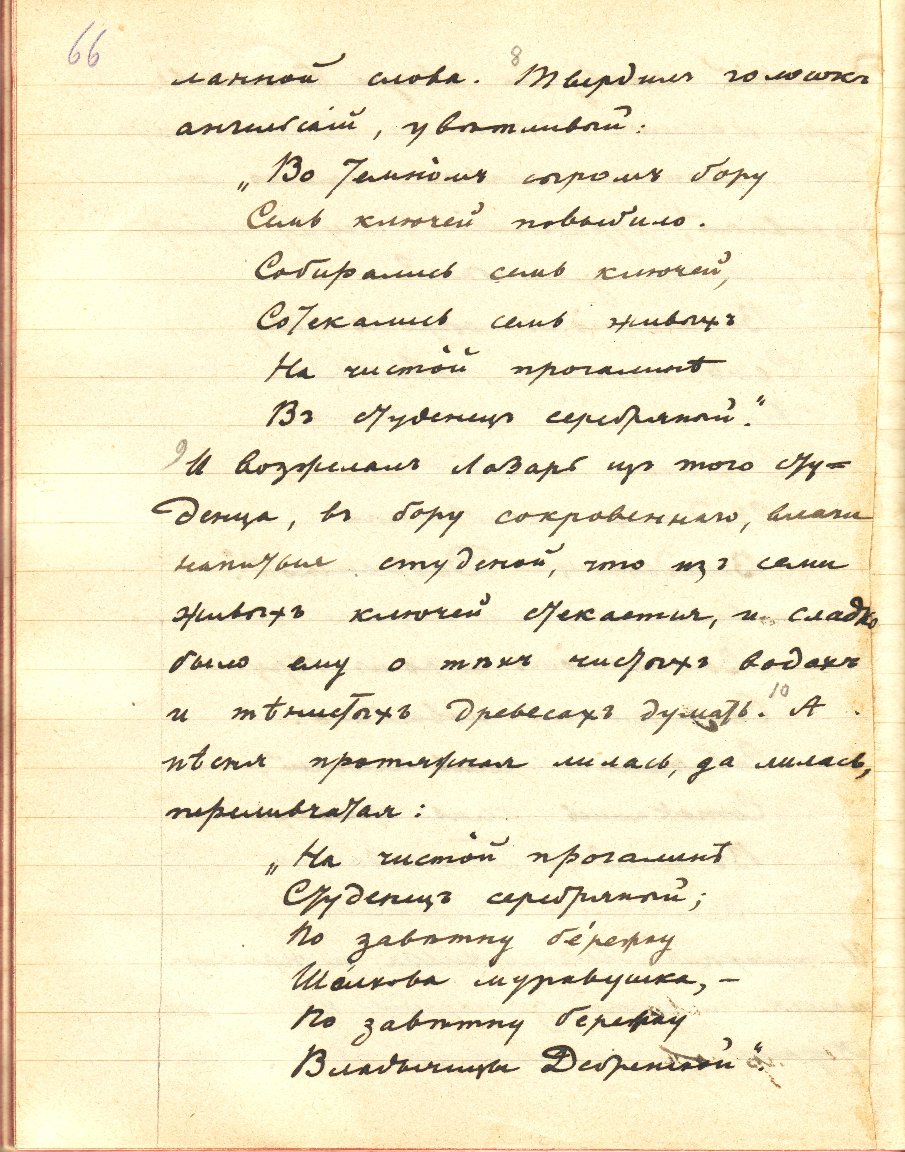 66
ланной слова. 8 Твердитъ голосокъ
ангельскій, увѣтливый:
„Во темномъ сыромъ бору
Семь ключей повыбило.
Собирались семь ключей,
Стекались семь живыхъ
На чистой прогалинѣ
Въ студенецъ серебряной".
9 И возжелалъ Лазарь изъ того сту=
денца, въ бору сокровеннаго, влаги
напиться студеной, что изъ семи
живыхъ ключей стекается, и сладко
было ему о тѣхъ чистыхъ водахъ
и тѣнистыхъ древесахъ думать. 10 А
пѣсня протяжная лилась, да лилась,
переливчатая:
„На чистой прогалинѣ
Студенецъ серебряной;
По завѣтну бе́режку
Шёлкова муравушка, –
По завѣтну бережку
Владычицы Дебренской".